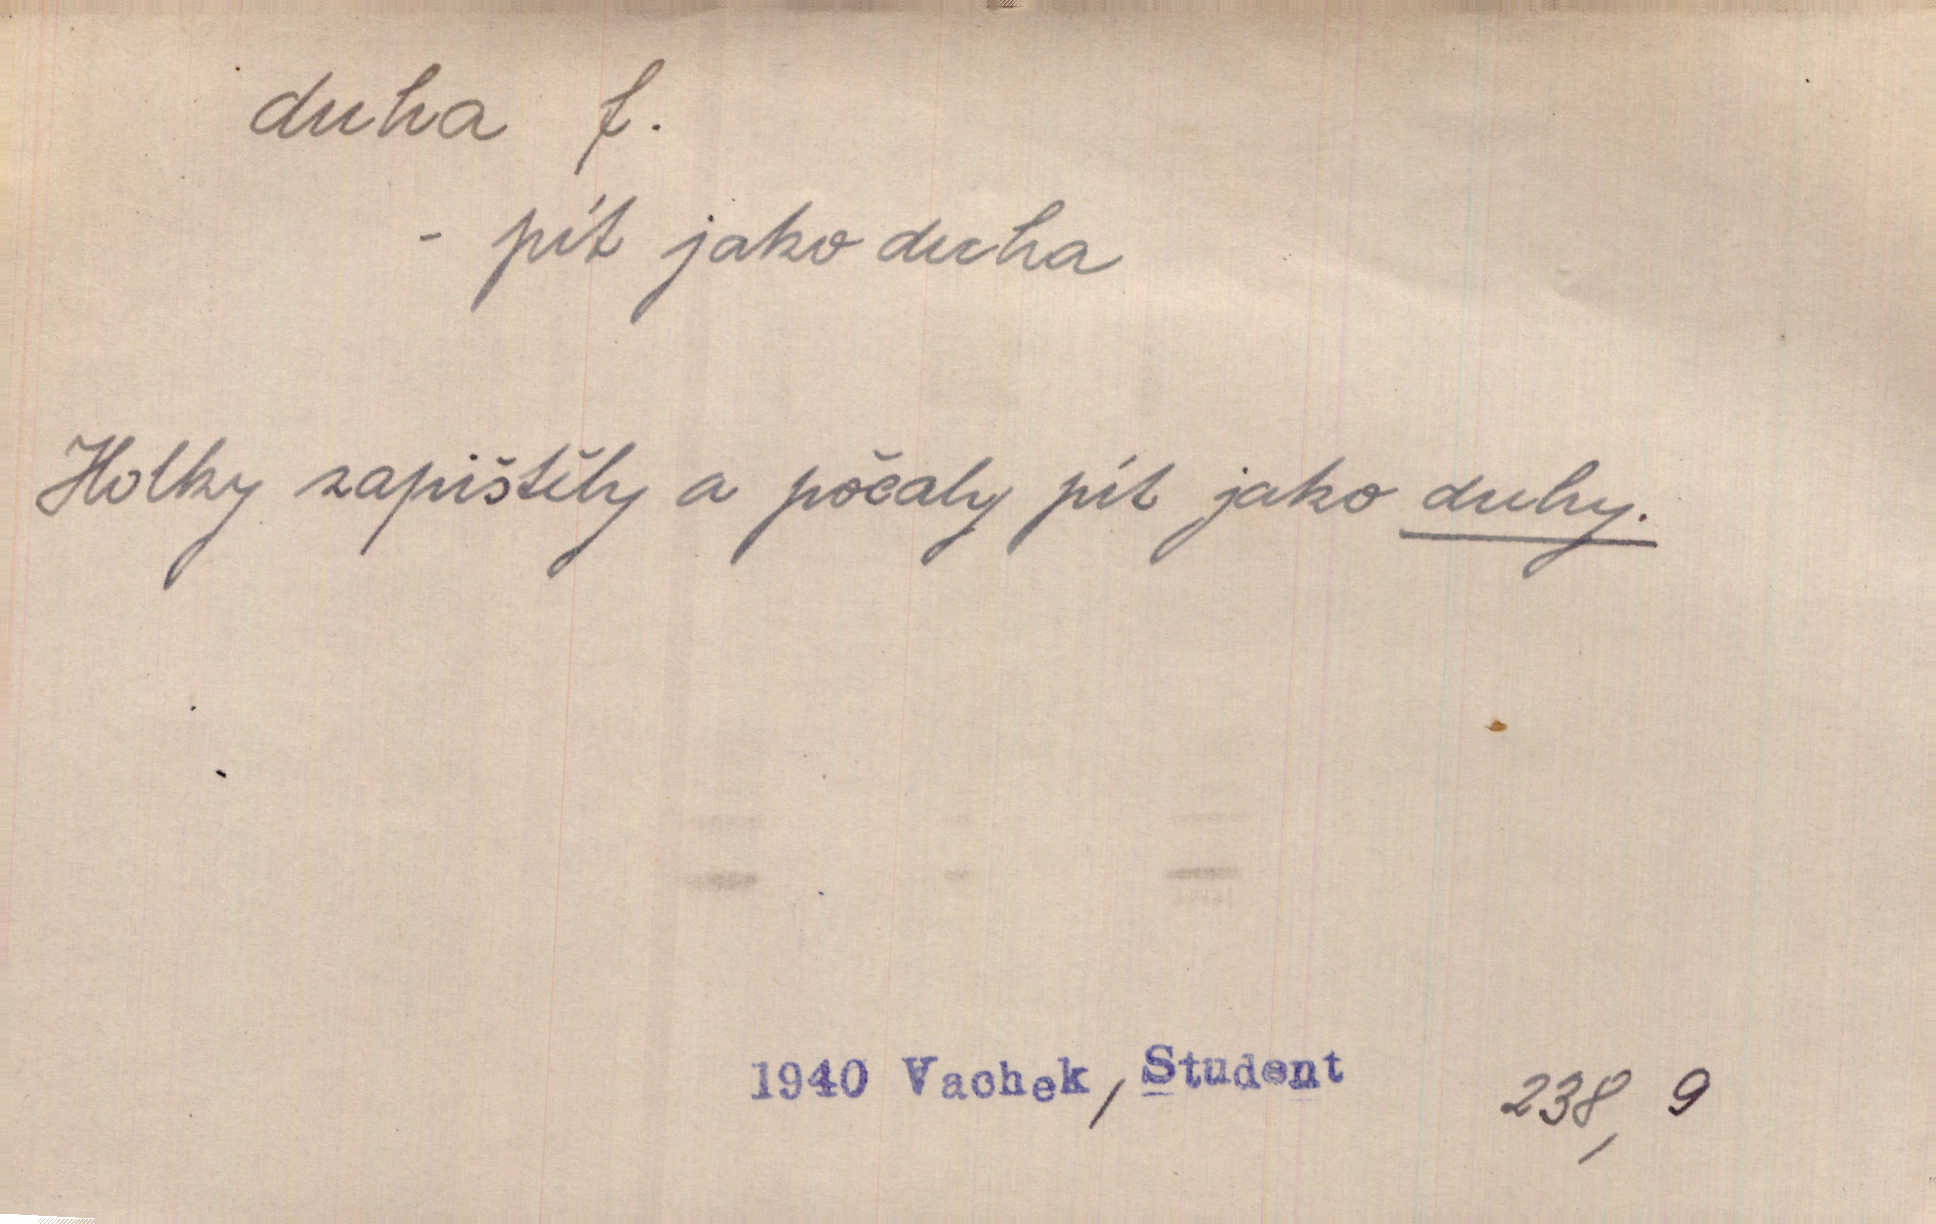 duha f.
- pít jako duha
Holky zapištěly a počaly pít jako duhy.
1940 Vachek, Student 238, 9